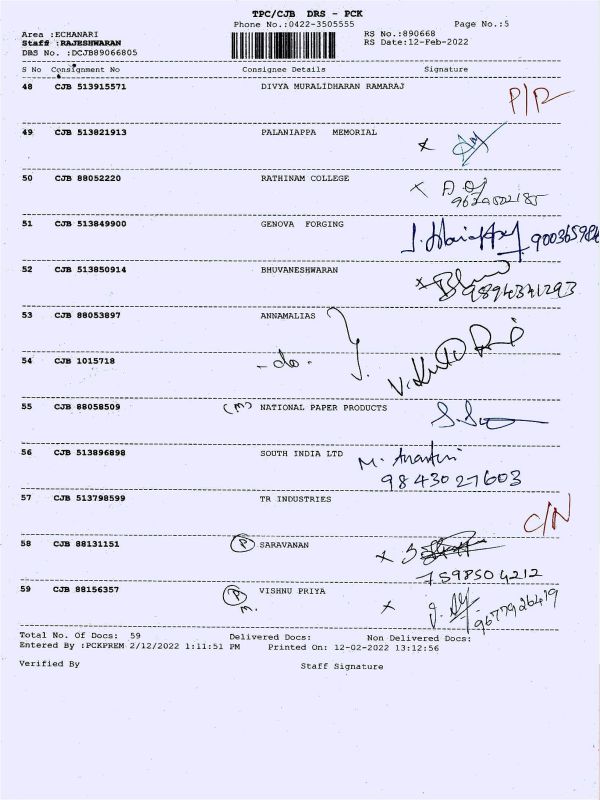 TPC/CJB DRS - PCK
Phone No.:0422-3505555 Page No.:5
Area :ECHANARI RS No.:890668
Staff :RAJESHWARAN RS Date:12-Feb-2022
DRS No. :DCJB89066805
S No Consignment No Consignee Details Signature
48 CJB 513915571 DIVYA MURALIDHARAN RAMARAJ
P/R
49 CJB 513821913 PALANIAPPA MEMORIAL x
50 CJB 88052220 RATHINAM COLLEGE x
51 CJB 513849900 GENOVA FORGING
52 CJB 513850914 BHUVANESHWARAN x
9894371293
53 CJB 88053897 ANNAMALIAS
54 CJB 1015718 -do-
55 CJB 88058509 (M) NATIONAL PAPER PRODUCTS
56 CJB 513896898 SOUTH INDIA LTD M.
9843027603
57 CJB 513798599 TR INDUSTRIES
C/N
58 CJB 88131151 (P) SARAVANAN x
7598504212
59 CJB 88156357 (P) VISHNU PRIYA x
M. 9677926419
Total No. Of Docs: 59 Delivered Docs: Non Delivered Docs:
Entered By :PCKPREM 2/12/2022 1:11:51 PM Printed On: 12-02-2022 13:12:56
Verified By Staff Signature